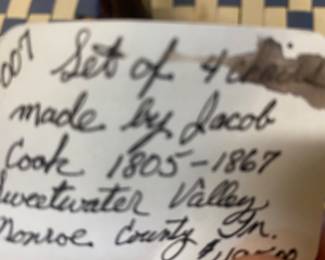 007
Set of 4 chairs
made by Jacob
Cook 1805-1867
Sweetwater Valley
Monroe County Tn.